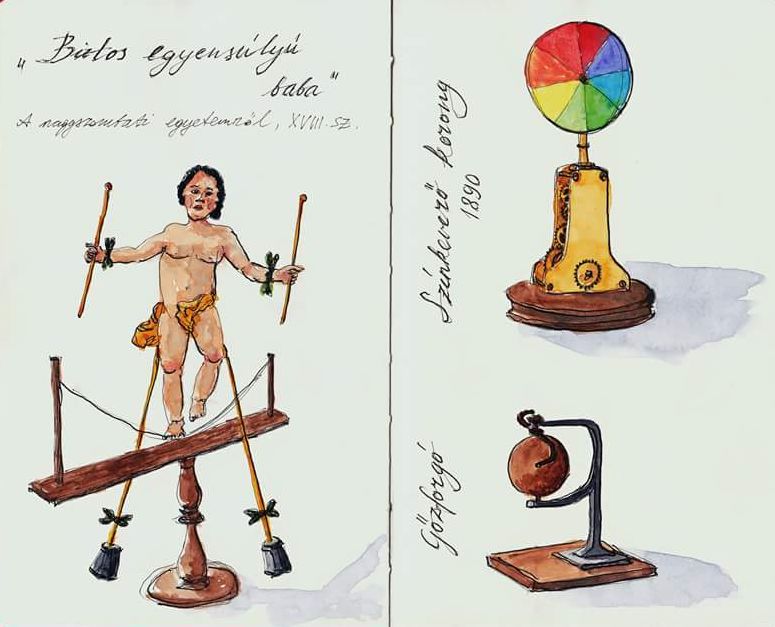 „Biztos egyensúlyú
baba"
A nagyszombati egyetemről, XVIII. sz.
Színkeverő korong
1890
Gőzforgó